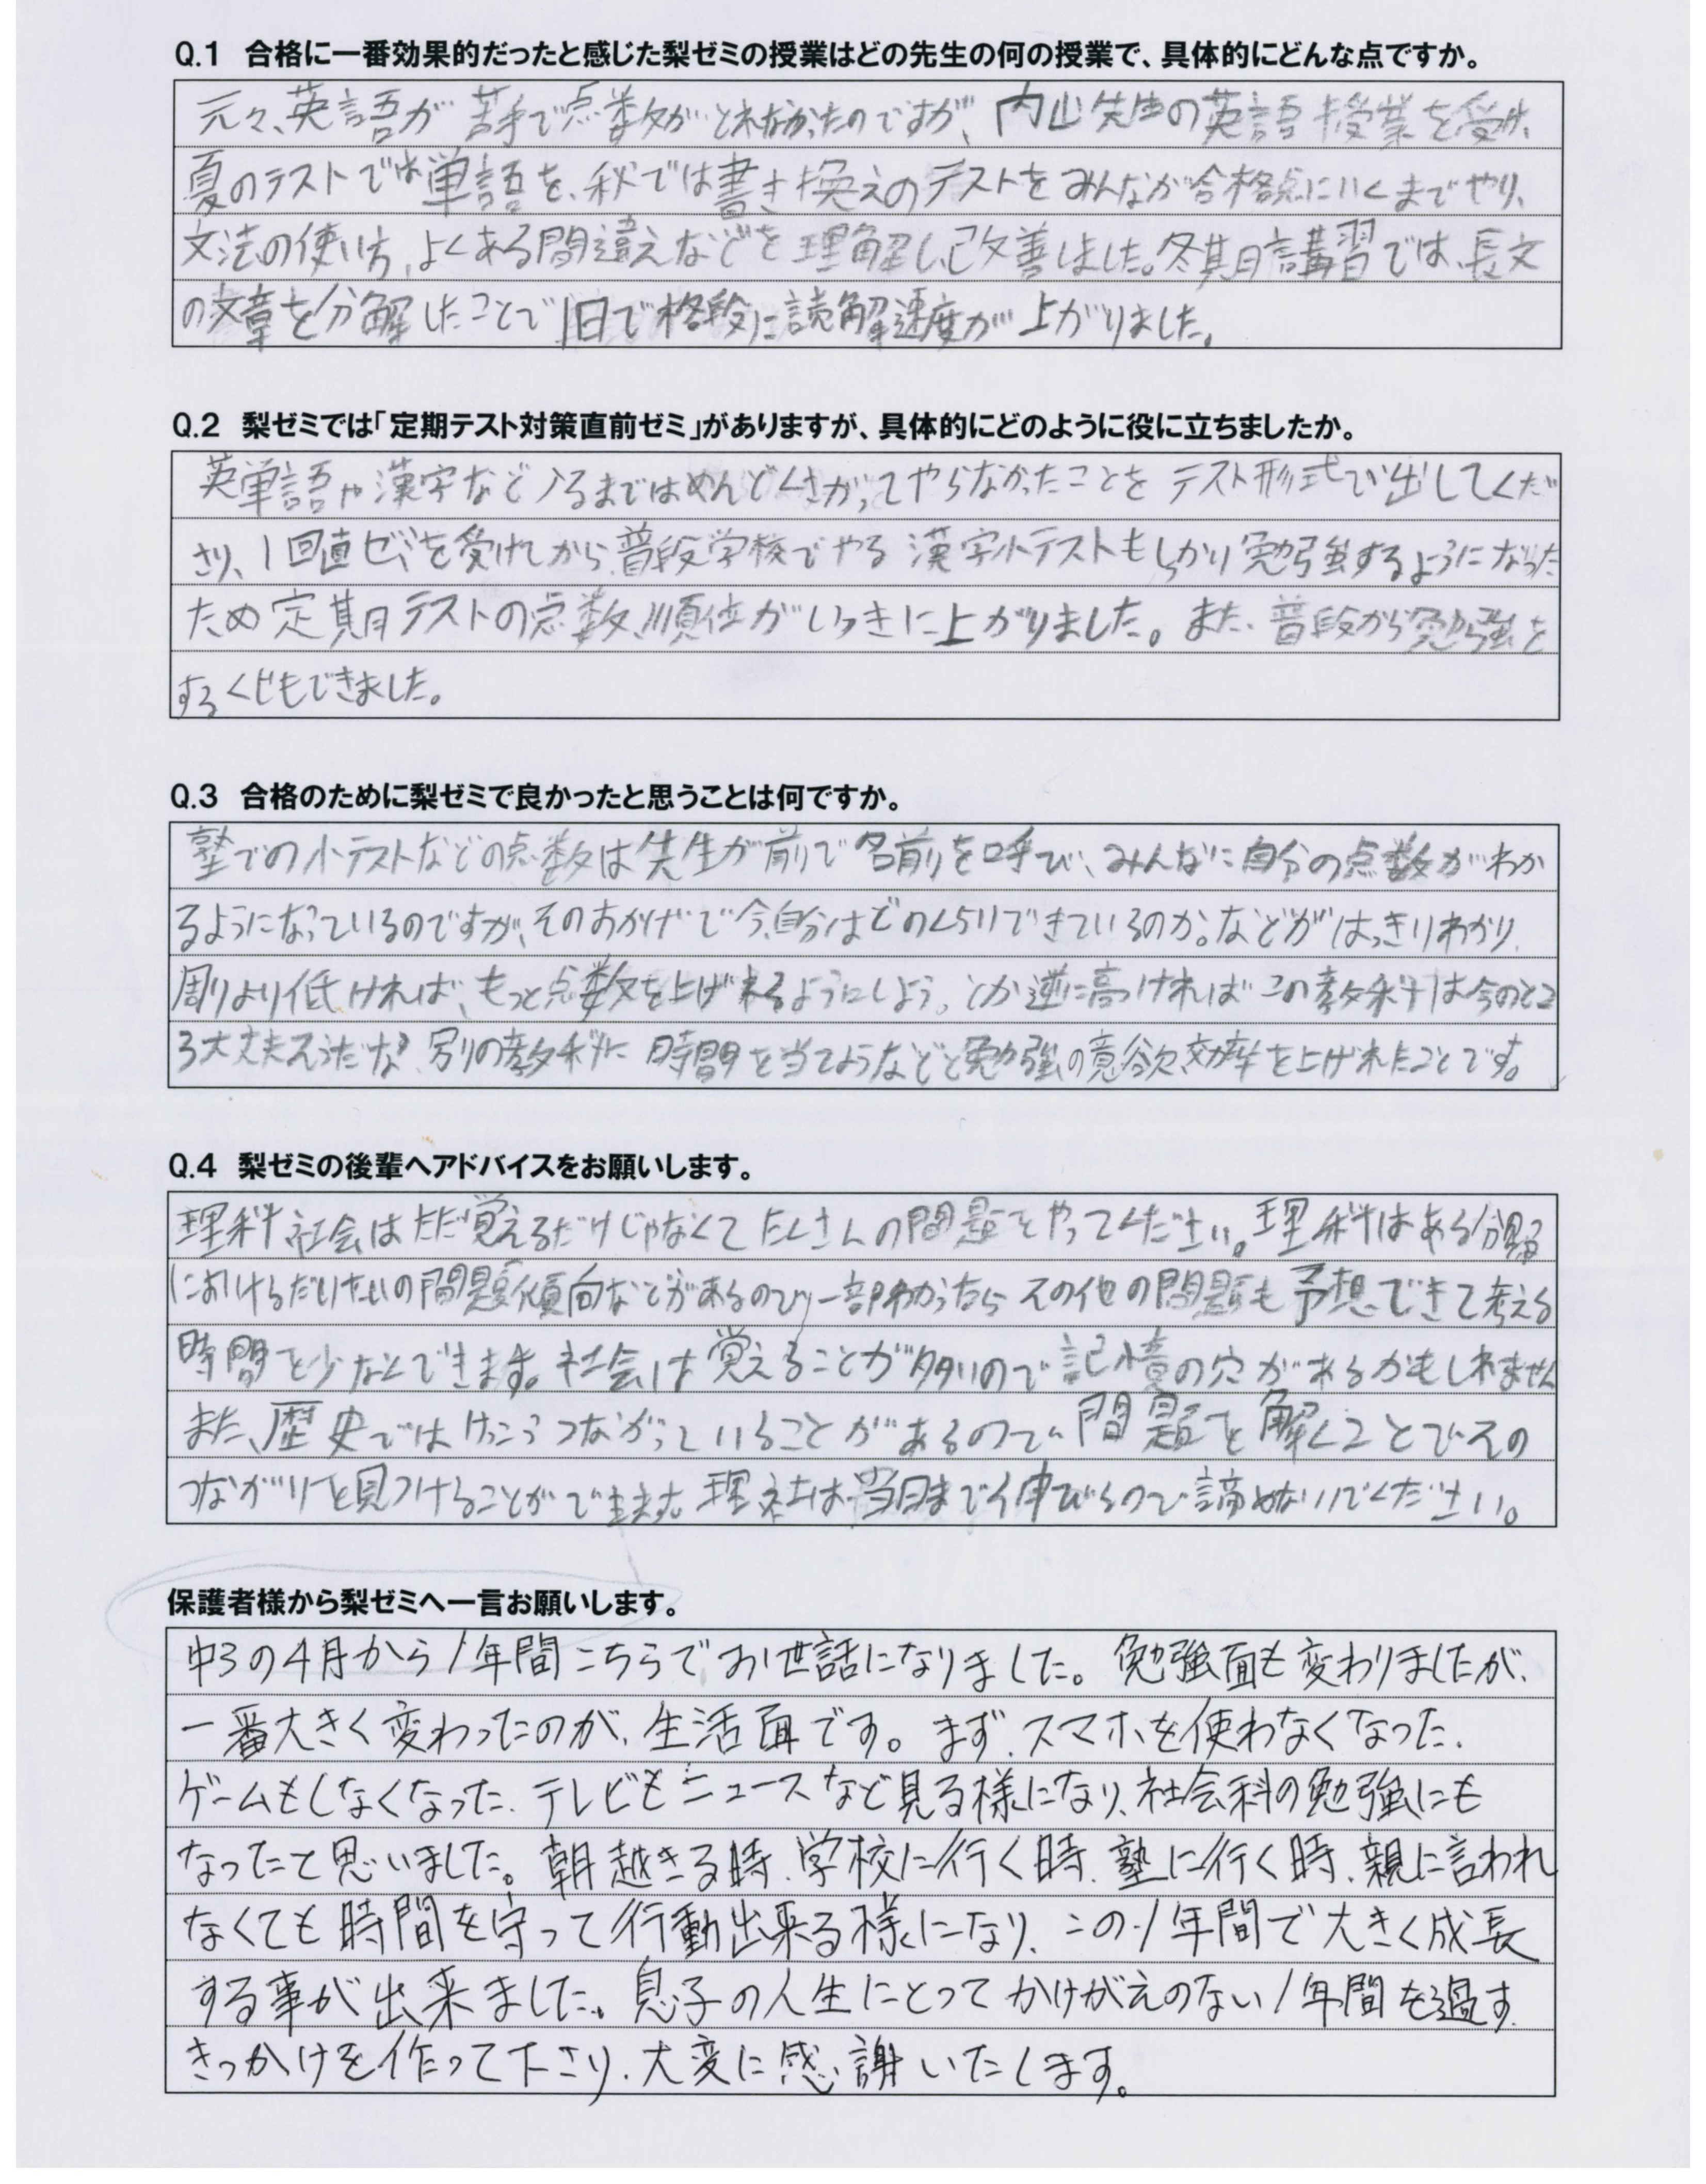 Q.1 合格に一番効果的だったと感じた梨ゼミの授業はどの先生の何の授業で、具体的にどんな点ですか。
元々、英語が苦手で点数がとれなかったのですが、内山先生の英語授業を受け、
夏のテストでは単語を、秋では書き換えのテストをみんなが合格点にいくまでやり、
文法の使い方、よくある間違えなどを理解し、改善しました。冬期講習では、長文
の文章を分解したことで1日で格段に読解速度が上がりました。
Q.2 梨ゼミでは「定期テスト対策直前ゼミ」がありますが、具体的にどのように役に立ちましたか。
英単語や漢字など入るまではめんどくさがってやらなかったことをテスト形式で出してくだ
さり、1回直ゼミを受けてから普段学校でやる漢字小テストもしっかり勉強するようになった
ため定期テストの点数、順位がいっきに上がりました。また、普段から勉強を
するくせもできました。
Q.3 合格のために梨ゼミで良かったと思うことは何ですか。
塾での小テストなどの点数は先生が前で名前を呼び、みんなに自分の点数がわか
るようになっているのですが、そのおかげで今、自分はどのくらいできているのか。などがはっきりわかり、
周りより低ければ、もっと点数を上げれるようにしよう。とか逆に高ければこの教科は今のとこ
ろ大丈夫そうだな、別の教科に時間を当てようなどと勉強の意欲、効率を上げれたことです。
Q.4 梨ゼミの後輩へアドバイスをお願いします。
理科社会はただ覚えるだけじゃなくてたくさんの問題をやってください。理科はある分野
におけるだいたいの問題傾向などがあるので一部わかったらその他の問題も予想できて考える
時間を少なくできます。社会は覚えることが多いので記憶の穴があるかもしれません
また、歴史ではけっこうつながっていることがあるので問題を解くことでその
つながりを見つけることができます。理社は当日まで伸びるので諦めないでください。
保護者様から梨ゼミへ一言お願いします。
中3の4月から1年間こちらでお世話になりました。勉強面も変わりましたが、
一番大きく変わったのが、生活面です。まず、スマホを使わなくなった、
ゲームもしなくなった、テレビもニュースなど見る様になり、社会科の勉強にも
なったと思いました。朝越きる時、学校に行く時、塾に行く時、親に言われ
なくても時間を守って行動出来る様になり、この1年間で大きく成長
する事が出来ました。息子の人生にとってかけがえのない1年間を過す、
きっかけを作って下さり、大変に感謝いたします。